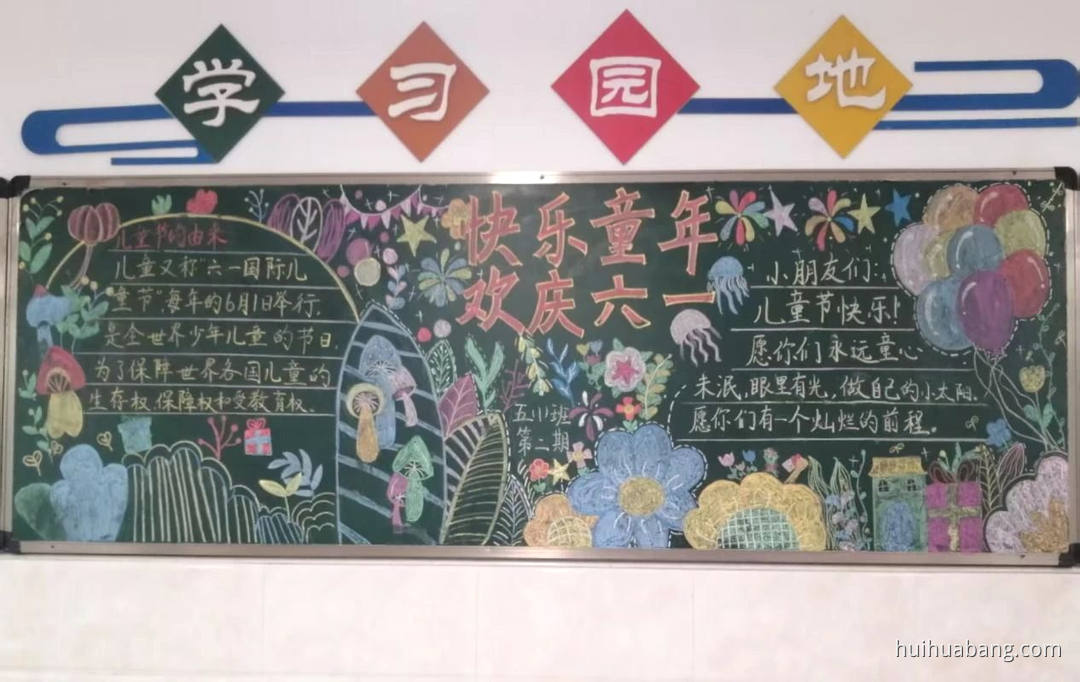 学习园地
快乐童年
欢庆六一
儿童节的由来
儿童又称"六一国际儿
童节",每年的6月1日举行.
是全世界少年儿童的节日.
为了保障世界各国儿童的
生存权.保障权和受教育权.
五(1)班
第二期
小朋友们:
儿童节快乐!
愿你们永远童心
未泯,眼里有光,做自己的小太阳.
愿你们有一个灿烂的前程。
huihuabang.com